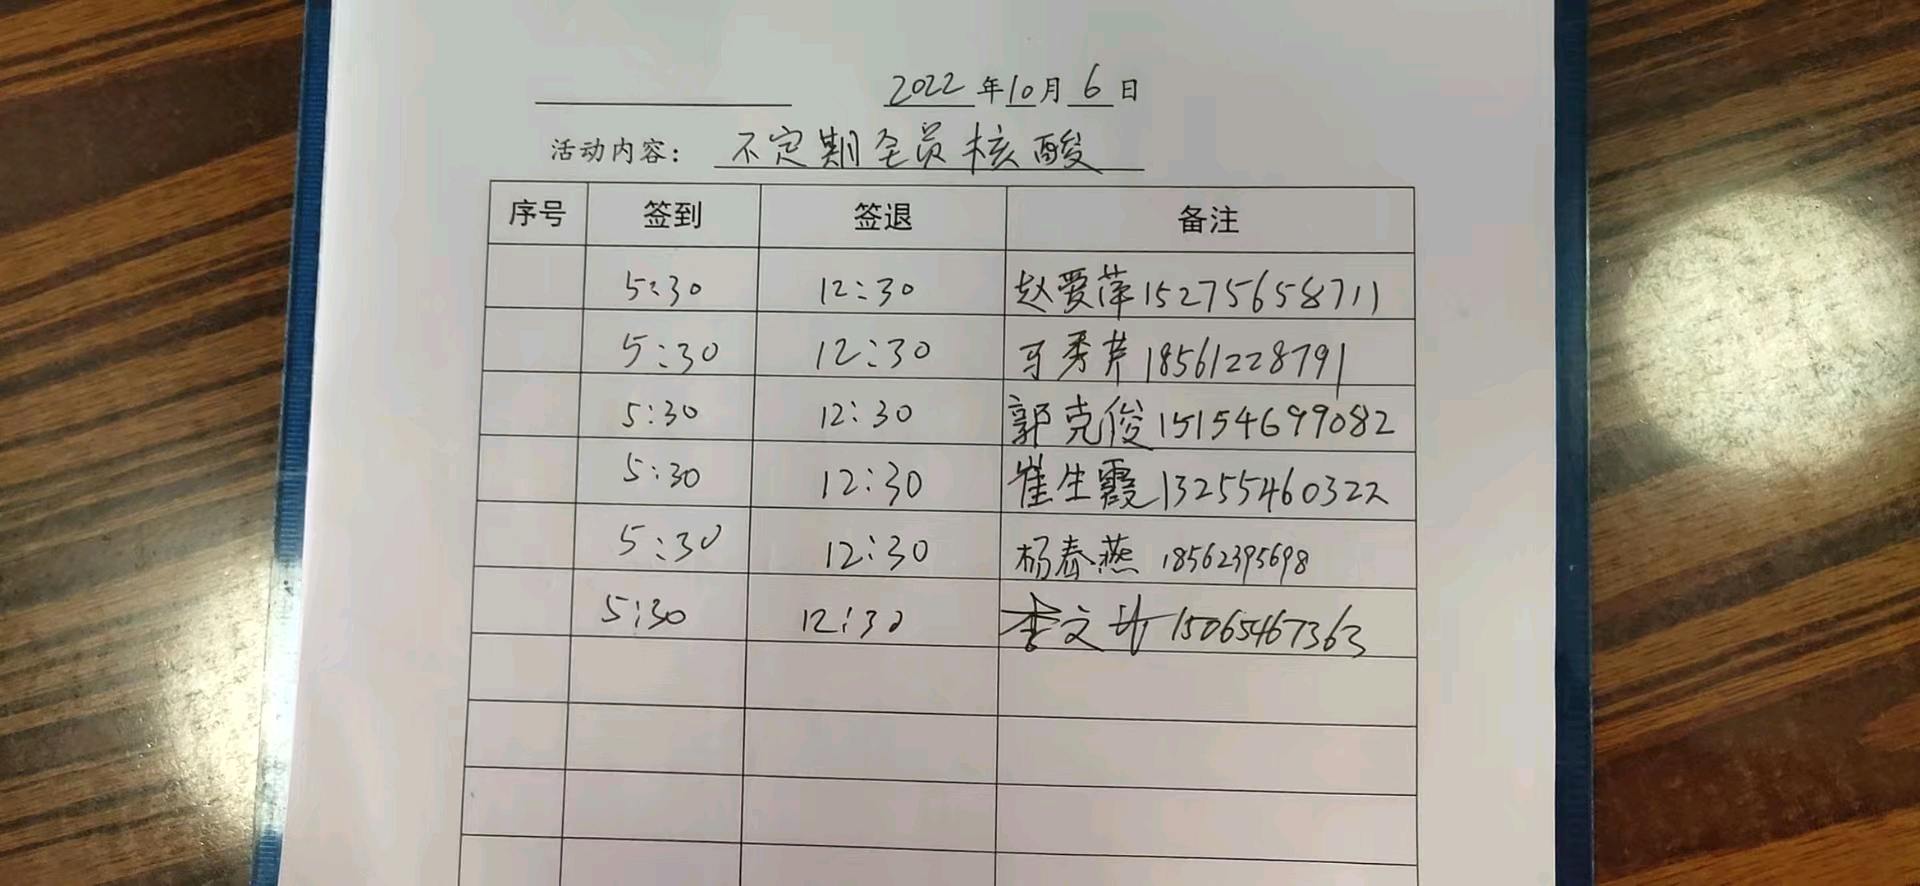 2022年10月6日
活动内容：不定期全员核酸
序号 签到 签退 备注
5:30 12:30 赵爱萍15275658711
5:30 12:30 秀芹18561228791
5:30 12:30 郭克俊15154699082
5:30 12:30 崔生霞13255460322
5:30 12:30 杨春燕 18562395698
5:30 12:30 李文 15065467363